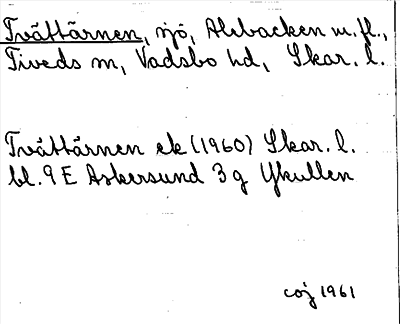 Tvättärnen, sjö, Alsbacken m.fl.,
Tiveds sn, Vadsbo hd, Skar. l.
Tvättärnen ek (1960) Skar. l.
bl. 9 E Askersund 3 g Ykullen
coj 1961